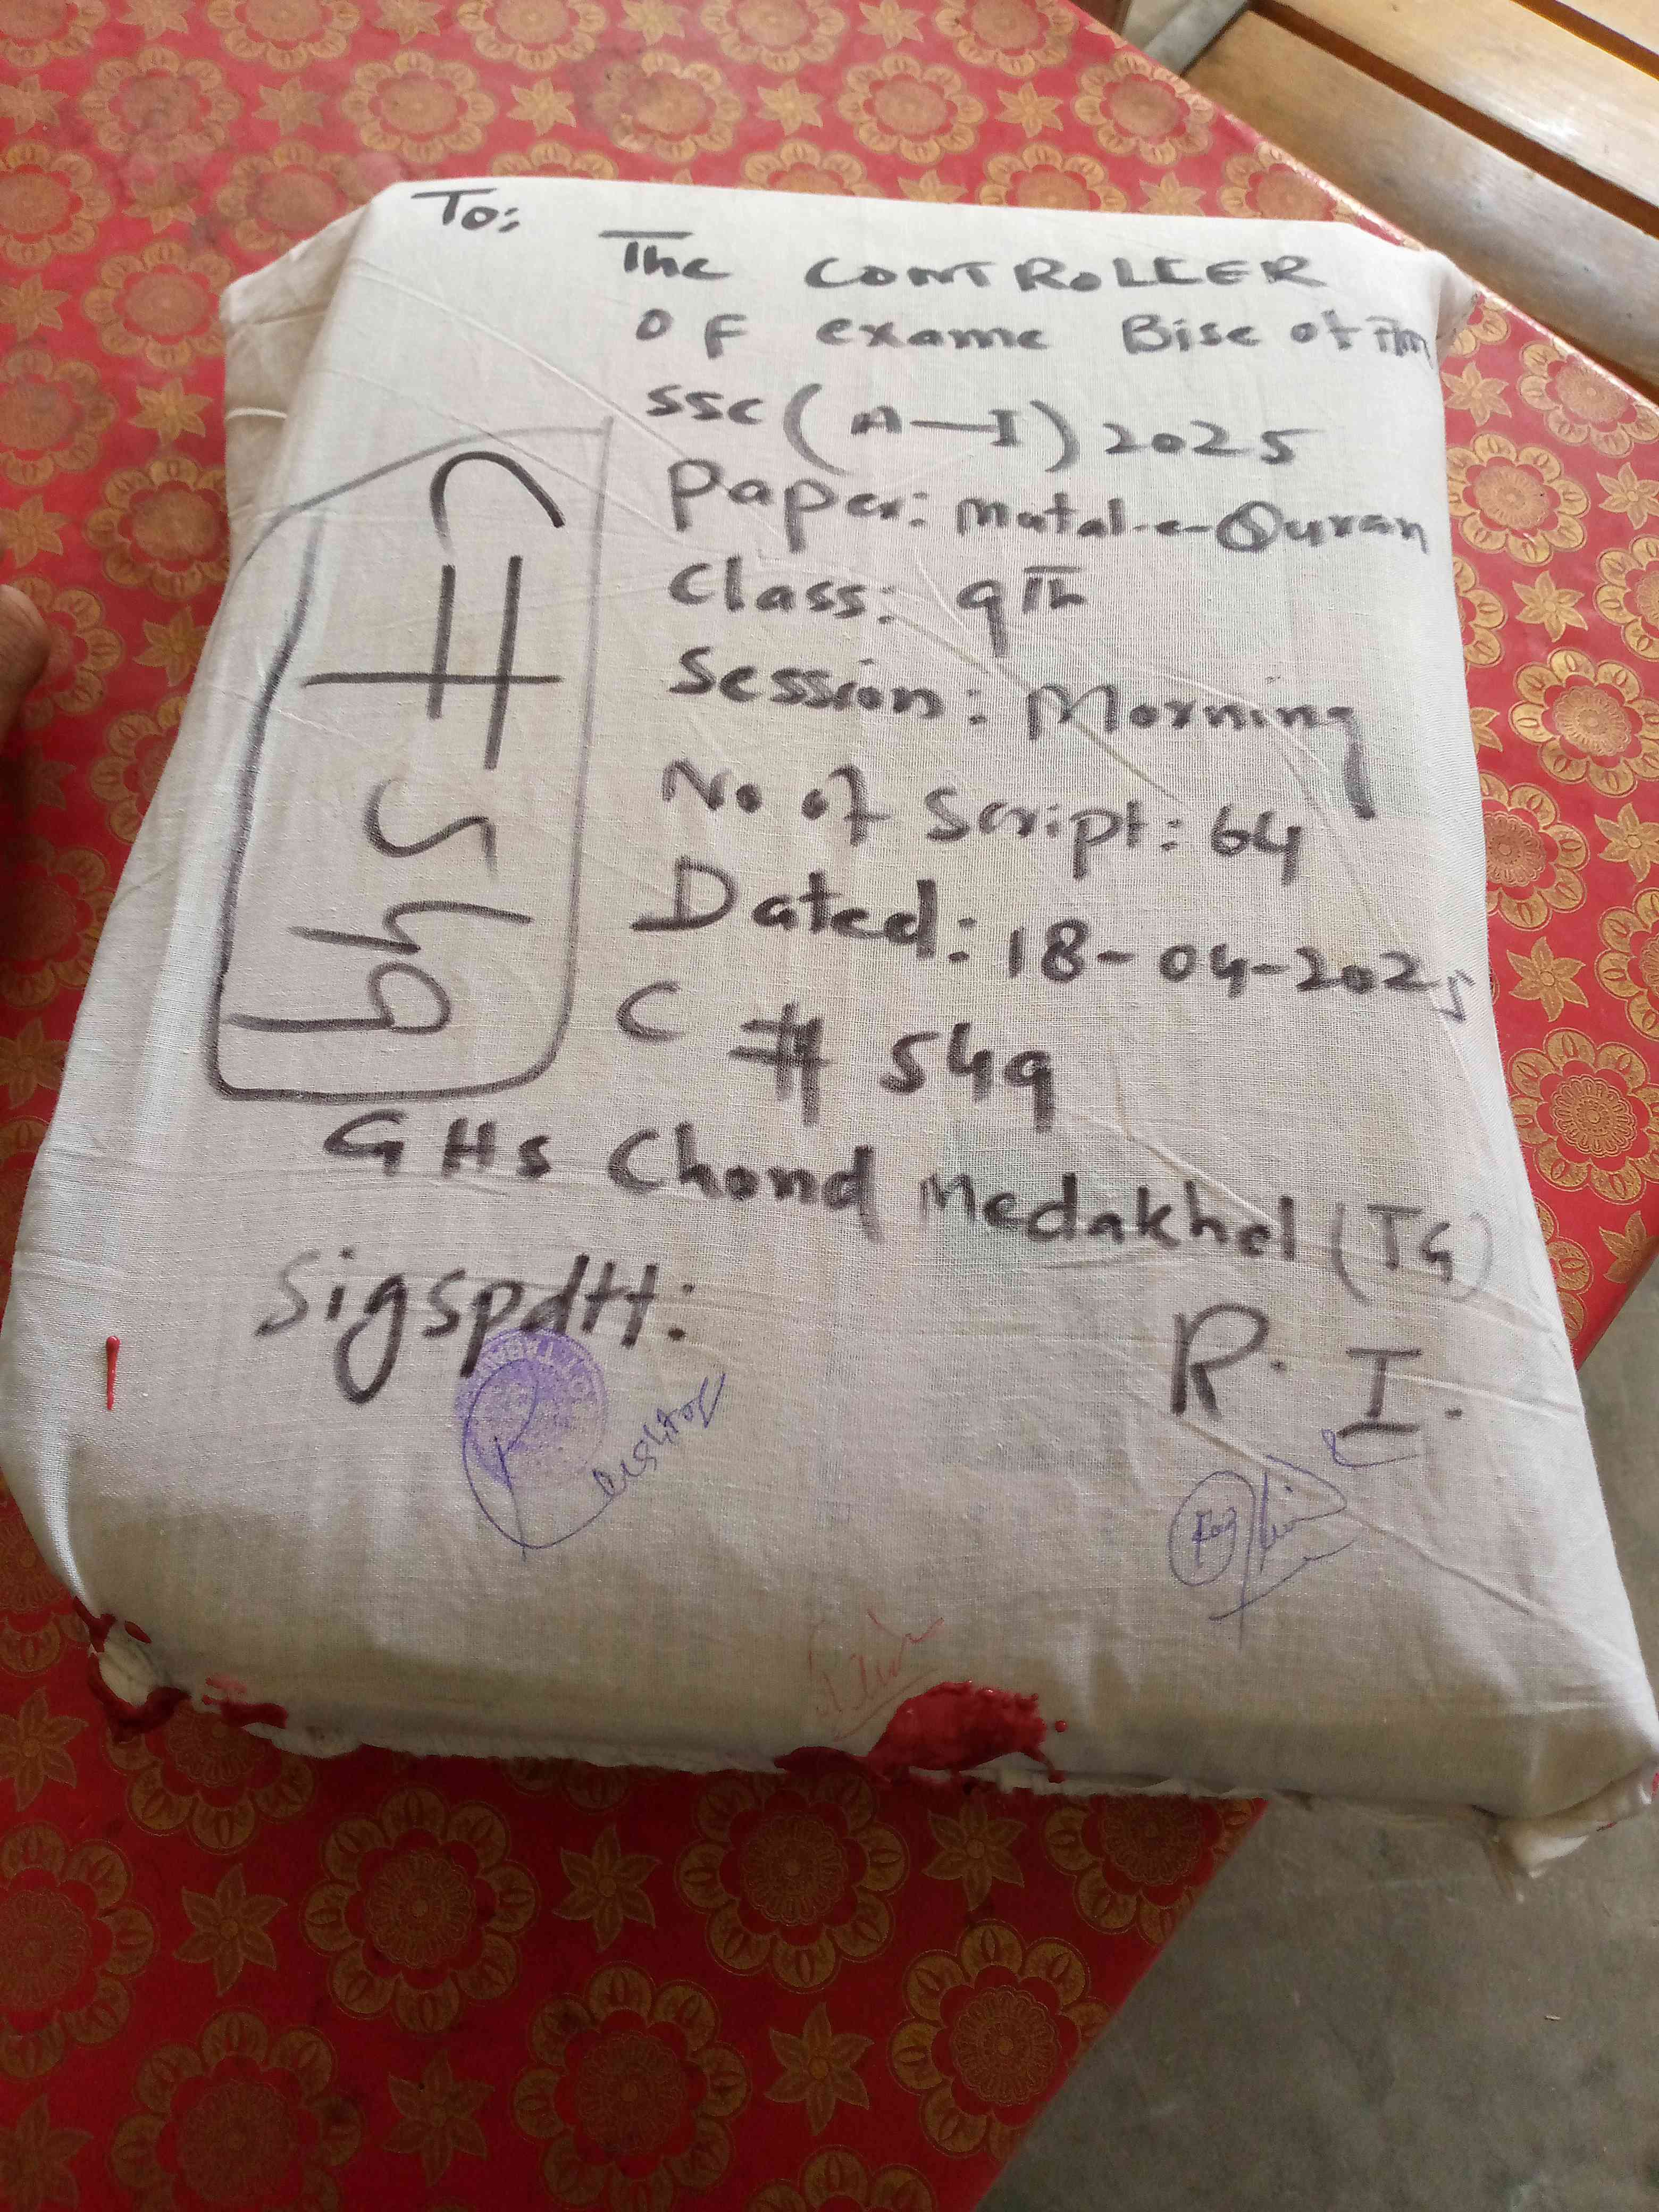 To:
The CONTROLLER
OF exame Bise
SSC (A-I) 2025
Paper: Mutal-e-Quran
Class: 9Th
Session: Morning
No of Script: 64
Dated: 18-04-2025
C # 549
C # 549
GHS Chond Medakhel (TG)
Sigspdtt:
R. I.